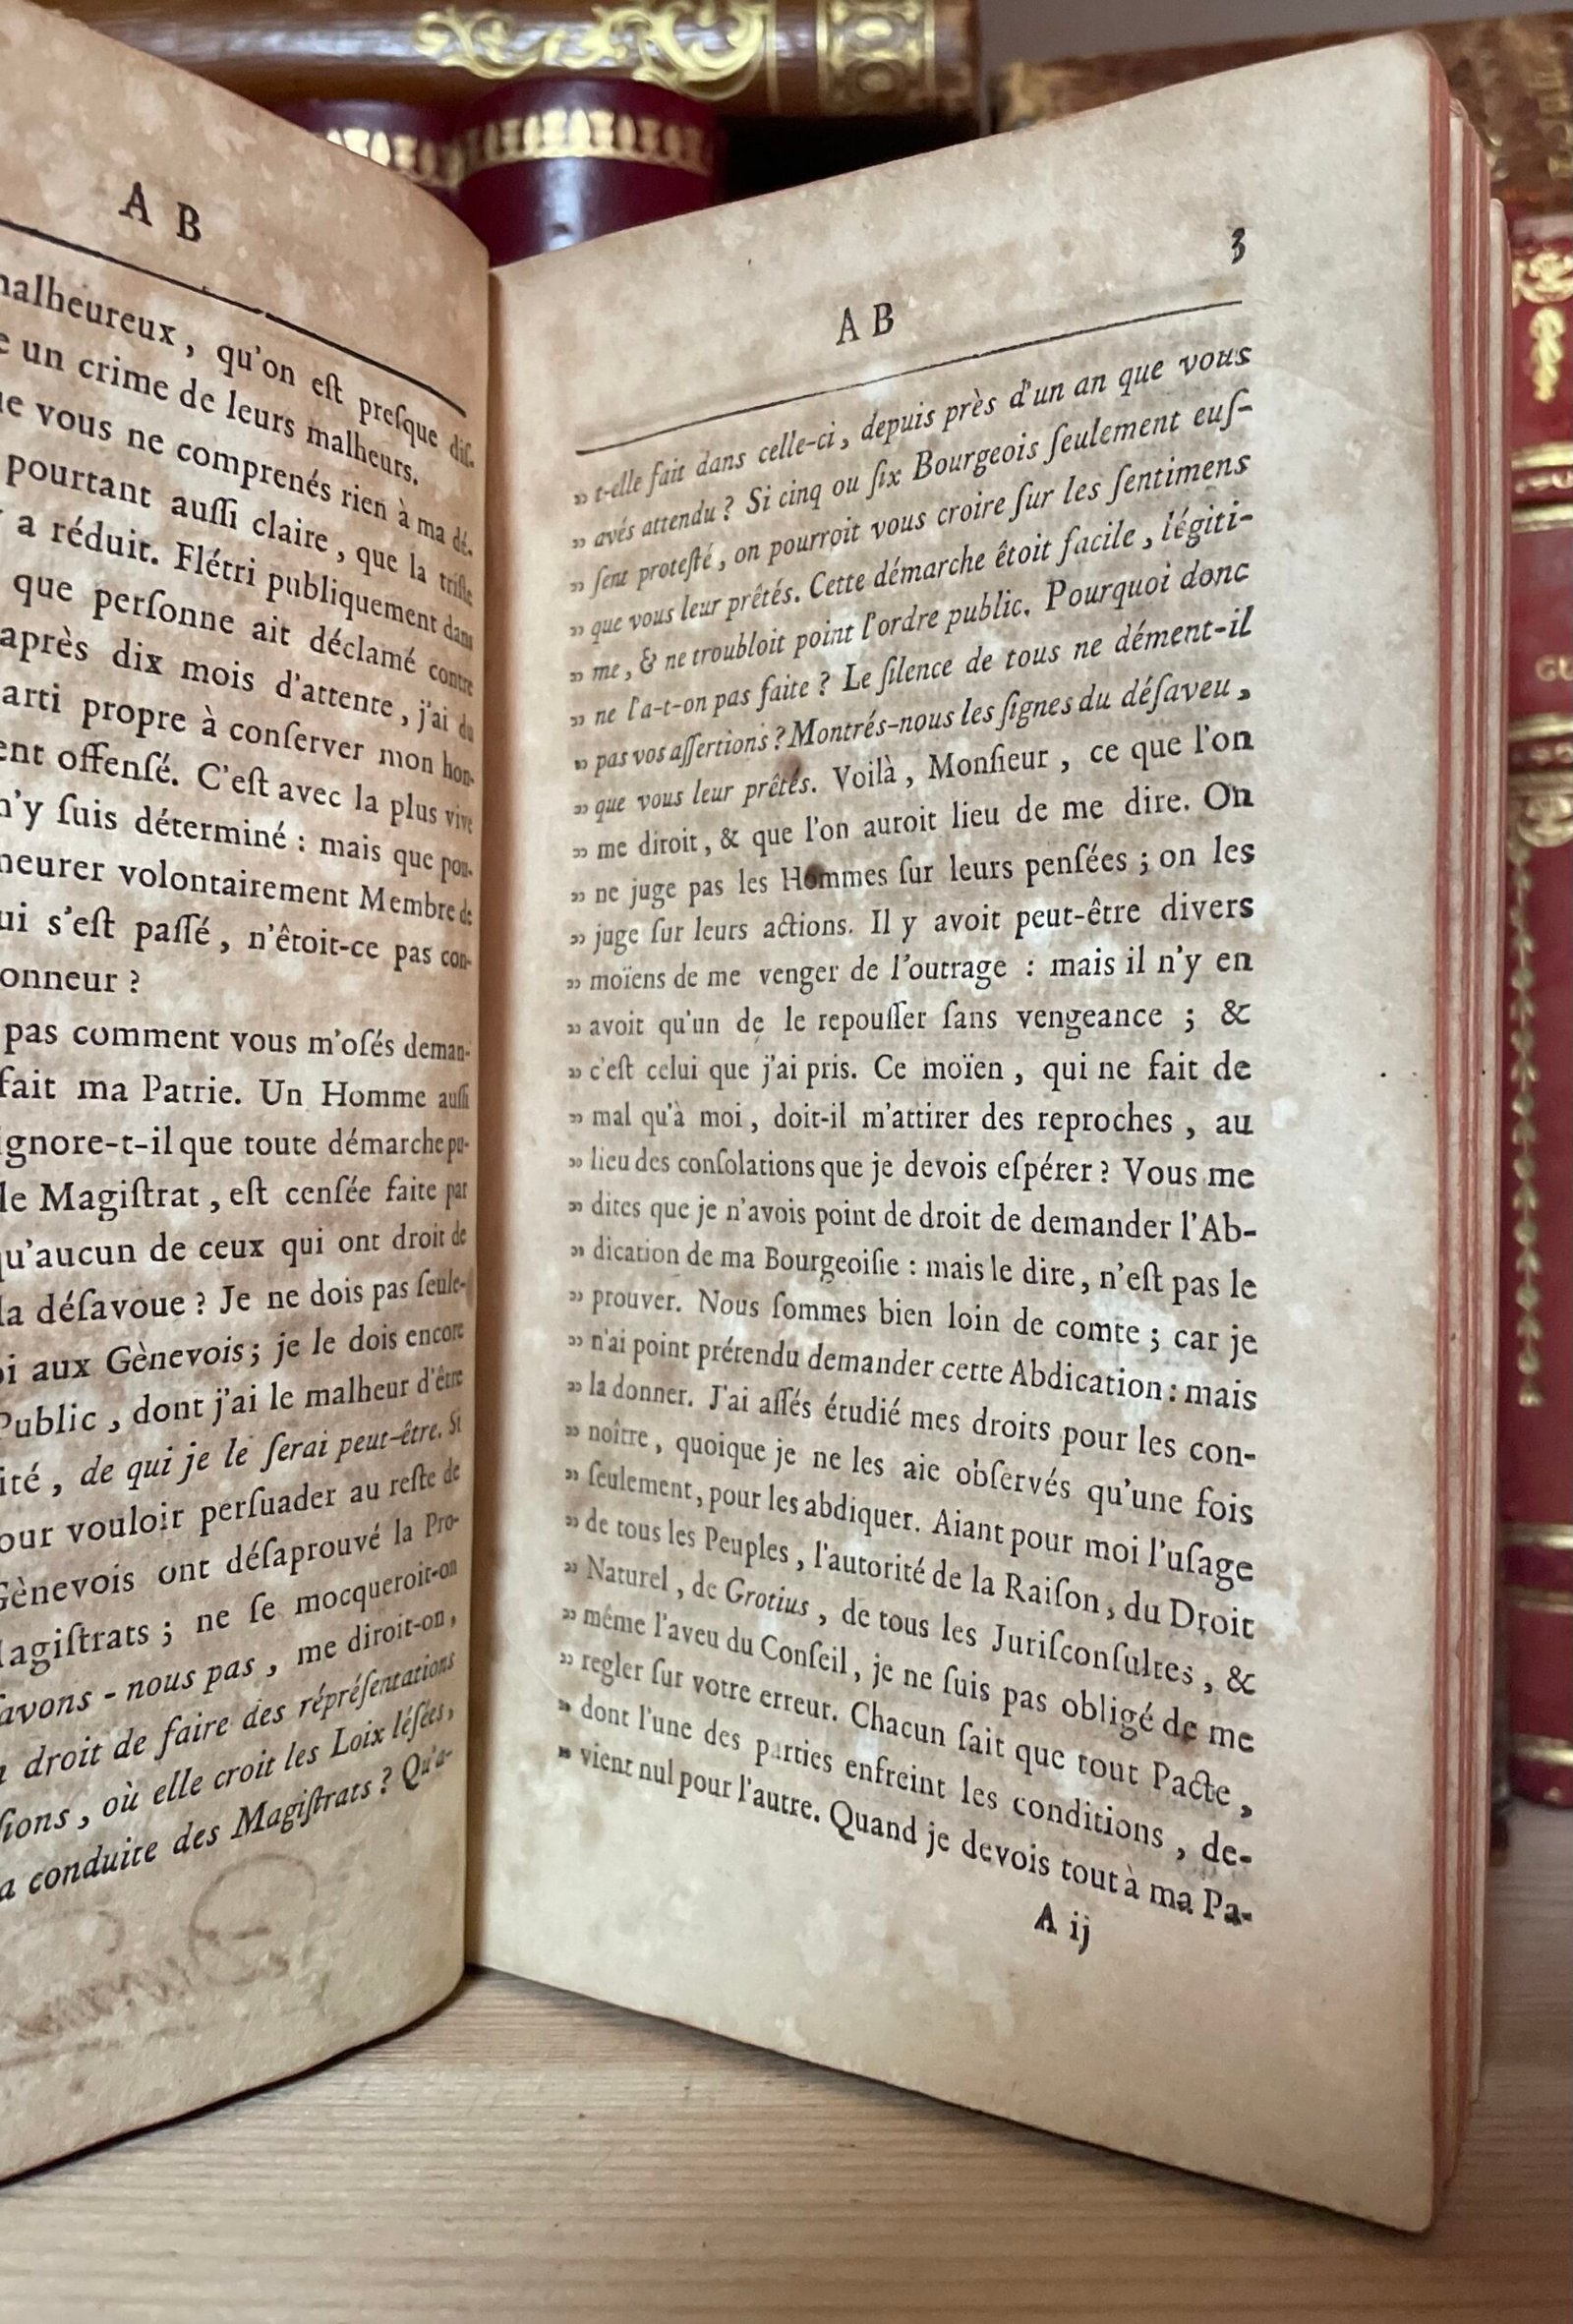 A B
malheureux, qu'on eſt preſque diſ-
un crime de leurs malheurs.
vous ne comprenés rien à ma dé-
pourtant auſſi claire, que la triſte
a réduit. Flétri publiquement dans
que perſonne ait déclamé contre
après dix mois d'attente, j'ai du
arti propre à conſerver mon hon-
ent offenſé. C'eſt avec la plus vive
n'y ſuis déterminé : mais que pou-
meurer volontairement Membre de
ui s'eſt paſſé, n'étoit-ce pas con-
onneur ?
pas comment vous m'oſés deman-
fait ma Patrie. Un Homme auſſi
ignore-t-il que toute démarche pu-
le Magiſtrat, eſt cenſée faite par
qu'aucun de ceux qui ont droit de
la déſavoue ? Je ne dois pas ſeule-
oi aux Gènevois; je le dois encore
Public, dont j'ai le malheur d'être
ité, de qui je le ſerai peut-être. Si
our vouloir perſuader au reſte de
Gènevois ont déſaprouvé la Pro-
Magiſtrats ; ne ſe mocqueroit-on
ſavons-nous pas, me diroit-on,
droit de faire des répréſentations
ſions, où elle croit les Loix léſées,
a conduite des Magiſtrats ? Qu'a-
3
A B
„ t-elle fait dans celle-ci, depuis près d'un an que vous
„ avés attendu ? Si cinq ou ſix Bourgeois ſeulement euſ-
„ ſent proteſté, on pourroit vous croire ſur les ſentimens
„ que vous leur prêtés. Cette démarche êtoit facile, légiti-
„ me, & ne troubloit point l'ordre public. Pourquoi donc
„ ne l'a-t-on pas faite ? Le ſilence de tous ne dément-il
„ pas vos aſſertions ? Montrés-nous les ſignes du déſaveu,
„ que vous leur prêtés. Voilà, Monſieur, ce que l'on
„ me diroit, & que l'on auroit lieu de me dire. On
„ ne juge pas les Hommes ſur leurs penſées ; on les
„ juge ſur leurs actions. Il y avoit peut-être divers
„ moïens de me venger de l'outrage : mais il n'y en
„ avoit qu'un de le repouſſer ſans vengeance ; &
„ c'eſt celui que j'ai pris. Ce moïen, qui ne fait de
„ mal qu'à moi, doit-il m'attirer des reproches, au
„ lieu des conſolations que je devois eſpérer ? Vous me
„ dites que je n'avois point de droit de demander l'Ab-
„ dication de ma Bourgeoiſie : mais le dire, n'eſt pas le
„ prouver. Nous ſommes bien loin de comte ; car je
„ n'ai point prétendu demander cette Abdication : mais
„ la donner. J'ai aſſés étudié mes droits pour les con-
„ noître, quoique je ne les aie obſervés qu'une fois
„ ſeulement, pour les abdiquer. Aiant pour moi l'uſage
„ de tous les Peuples, l'autorité de la Raiſon, du Droit
„ Naturel, de Grotius, de tous les Juriſconſultes, &
„ même l'aveu du Conſeil, je ne ſuis pas obligé de me
„ regler ſur votre erreur. Chacun ſait que tout Pacte,
„ dont l'une des parties enfreint les conditions, de-
„ vient nul pour l'autre. Quand je devois tout à ma Pa-
A ij
GU